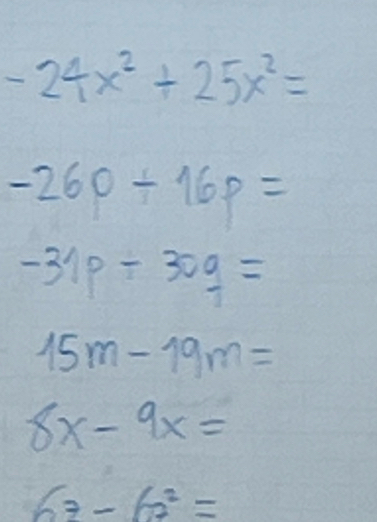 -24x² + 25x² =
-26p + 16p =
-31p + 30q =
15m - 19m =
8x - 9x =
6z - 6z² =